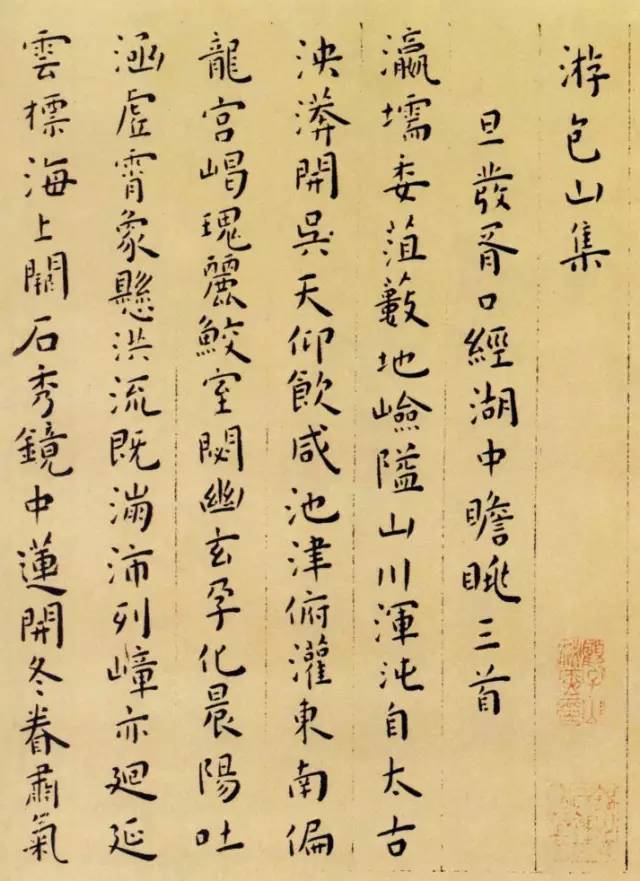 游包山集
旦發胥口經湖中瞻眺三首
瀛壖委菹藪地嶮隘山川渾沌自太古
泱漭開吳天仰飲咸池津俯灌東南偏
龍宮崵瑰麗鮫室閟幽玄孕化晨陽吐
涵虛霄象懸洪流既滿沛列嶂亦廻延
雲標海上闕石秀鏡中蓮開冬眷肅氣